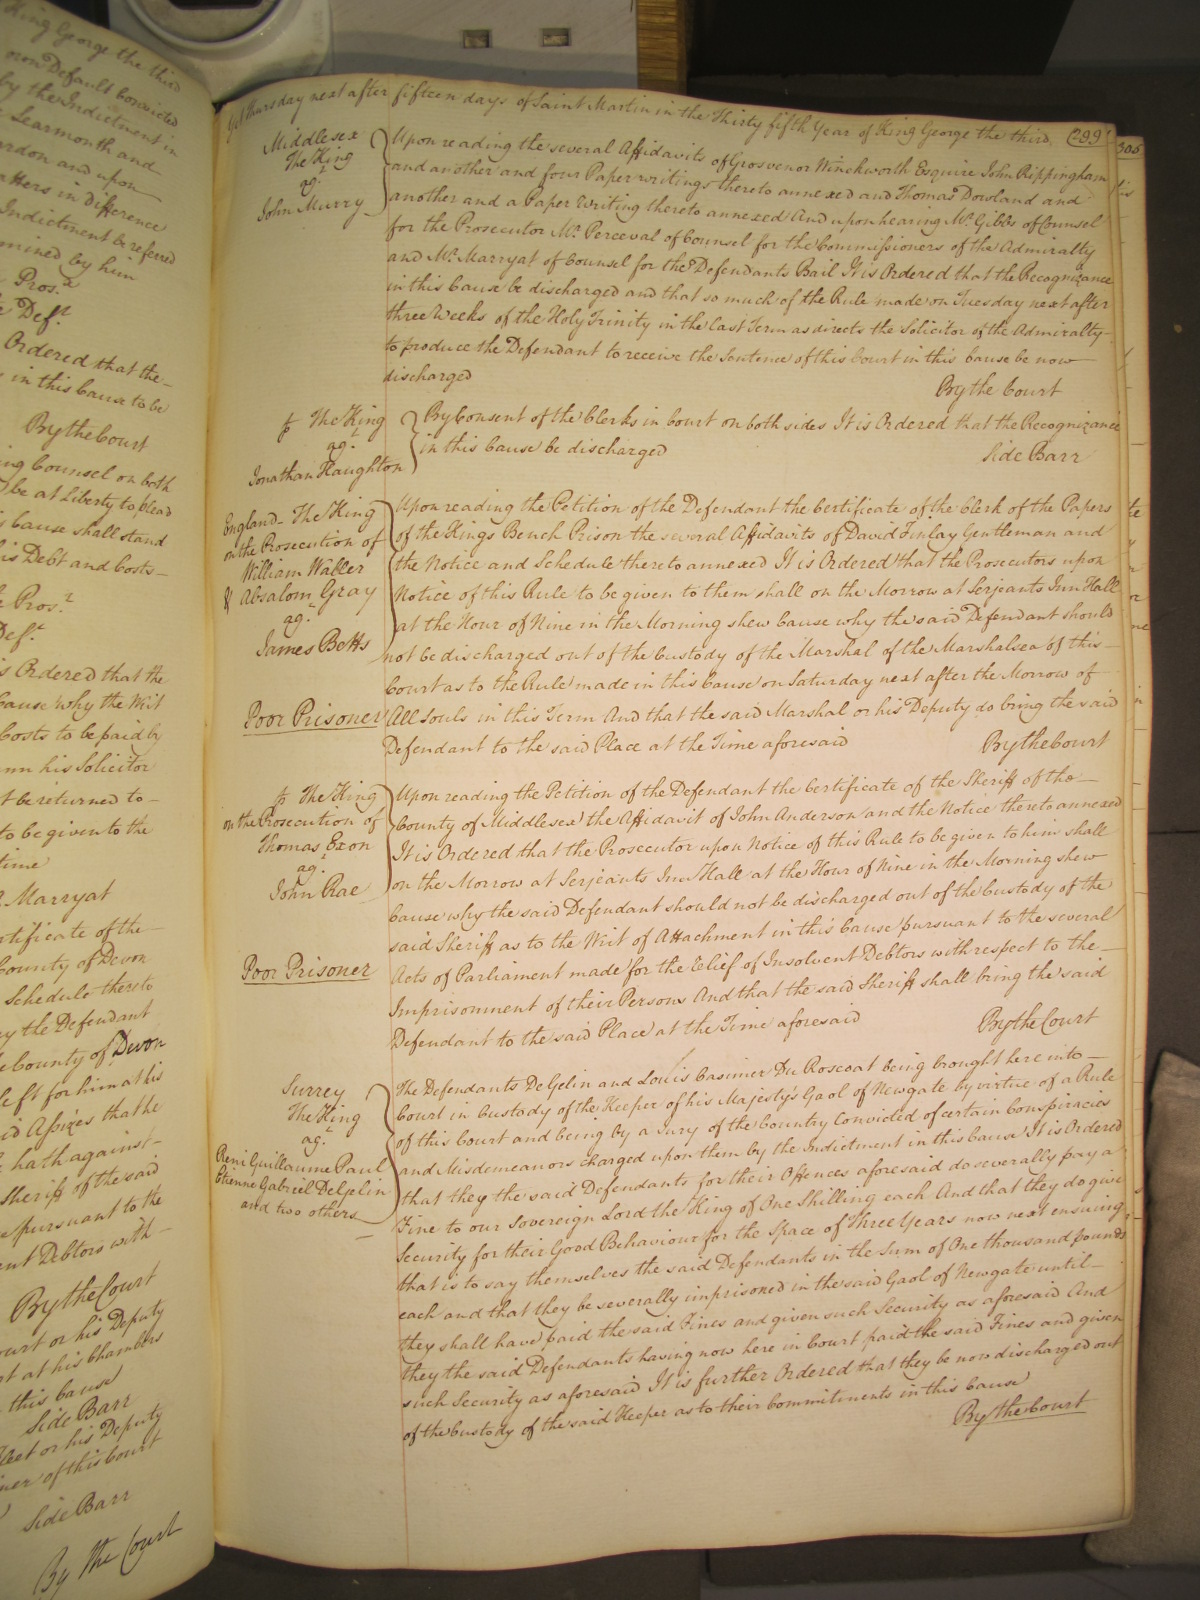 King George the third
upon Default convicted
by the Indictment in
Learmonth and
ardon and upon
atters in difference
Indictment be referred
mined by him
Pros.r
Def.t
Ordered that the
in this Cause to be
By the Court
ing Counsel on both
be at Liberty to plead
Cause shall stand
his Debt and Costs
Pros.r
Def.t
is Ordered that the
Cause why the Writ
Costs to be paid by
ann his Solicitor
t be returned to
to be given to the
time
Marryat
rtificate of the
County of Devon
Schedule thereto
ay the Defendant
e County of Devon
left for him at his
id Assizes that he
hath against
Sheriff of the said
pursuant to the
ent Debtors with
By the Court
ourt or his Deputy
at at his Chambers
this Cause
Side Barr
leet or his Deputy
ner of this Court
Side Barr
By the Court
Thursday next after fifteen days of Saint Martin in the Thirty fifth Year of King George the third 299
Middlesex
The King
ag.t
John Murry
Upon reading the several Affidavits of Grosvenor Winckworth Esquire John Rippingham
and another and four Paper writings thereto annexed and Thomas Dowland and
another and a Paper Writing thereto annexed And upon hearing Mr. Gibbs of Counsel
for the Prosecutor Mr. Perceval of Counsel for the Commissioners of the Admiralty
and Mr. Marryat of Counsel for the Defendants Bail It is Ordered that the Recognizance
in this Cause be discharged and that so much of the Rule made on Tuesday next after
three Weeks of the Holy Trinity in the last Term as directs the Solicitor of the Admiralty
to produce the Defendant to receive the Sentence of this Court in this Cause be now
discharged
By the Court
The King
ag.t
Jonathan Haughton
By Consent of the Clerks in Court on both sides It is Ordered that the Recognizance
in this Cause be discharged
Side Barr
England The King
on the Prosecution of
William Waller
& Absalom Gray
ag.t
James Betts
Poor Prisoner
Upon reading the Petition of the Defendant the Certificate of the Clerk of the Papers
of the Kings Bench Prison the several Affidavits of David Finlay Gentleman and
the Notice and Schedule thereto annexed It is Ordered that the Prosecutors upon
Notice of this Rule to be given to them shall on the Morrow at Serjeants Inn Hall
at the Hour of Nine in the Morning shew Cause why the said Defendant should
not be discharged out of the Custody of the Marshal of the Marshalsea of this
Court as to the Rule made in this Cause on Saturday next after the Morrow of
All Souls in this Term And that the said Marshal or his Deputy do bring the said
Defendant to the said Place at the Time aforesaid
By the Court
The King
on the Prosecution of
Thomas Exon
ag.t
John Rae
Poor Prisoner
Upon reading the Petition of the Defendant the Certificate of the Sheriff of the
County of Middlesex the Affidavit of John Anderson and the Notice thereto annexed
It is Ordered that the Prosecutor upon Notice of this Rule to be given to him shall
on the Morrow at Serjeants Inn Hall at the Hour of Nine in the Morning shew
Cause why the said Defendant should not be discharged out of the Custody of the
said Sheriff as to the Writ of Attachment in this Cause pursuant to the several
Acts of Parliament made for the relief of Insolvent Debtors with respect to the
Imprisonment of their Persons And that the said Sheriff shall bring the said
Defendant to the said Place at the Time aforesaid
By the Court
Surrey
The King
ag.t
Reni Guillaume Paul
Etienne Gabriel DeGelin
and two others
The Defendants DeGelin and Louis Casimer Du Roscoat being brought here into
Court in Custody of the Keeper of his Majesty's Gaol of Newgate by virtue of a Rule
of this Court and being by a Jury of the Country Convicted of certain Conspiracies
and Misdemeanors charged upon them by the Indictment in this Cause It is Ordered
that they the said Defendants for their Offences aforesaid do severally pay a
Fine to our Sovereign Lord the King of One Shilling each And that they do give
Security for their Good Behaviour for the Space of Three Years now next ensuing
that is to say themselves the said Defendants in the Sum of One thousand pounds
each and that they be severally imprisoned in the said Gaol of Newgate until
they shall have paid the said Fines and given such Security as aforesaid And
they the said Defendants having now here in Court paid the said Fines and given
such Security as aforesaid It is further Ordered that they be now discharged out
of the Custody of the said Keeper as to their Commitments in this Cause
By the Court